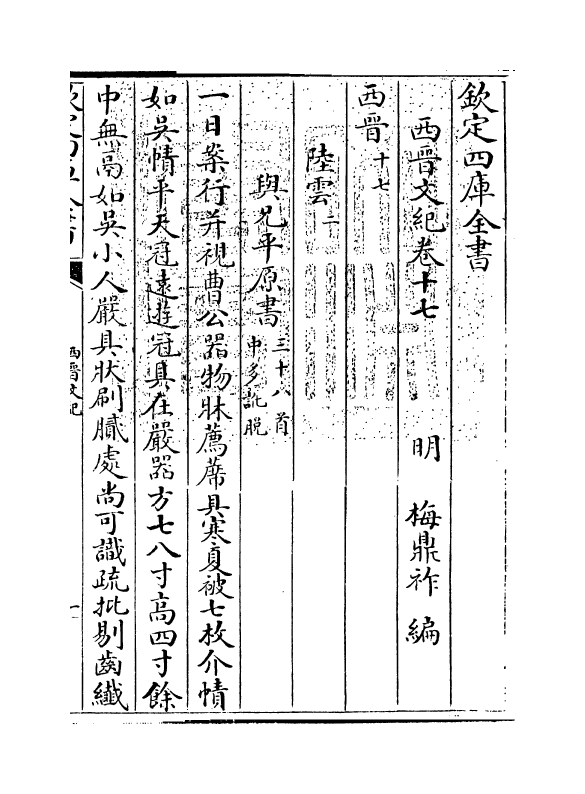 欽定四庫全書
西晉文紀卷十七
明 梅鼎祚 編
西晉十七
陸雲二
與兄平原書三十八首中多訛脫
一日案行并視曹公器物牀薦席具寒夏被七枚介幘
如吳幘平天冠遠遊冠具在嚴器方七八寸高四寸餘
中無鬲如吳小人嚴具狀刷膩處尚可識疏批剔齒纖
欽定四庫全書
西晉文紀
一